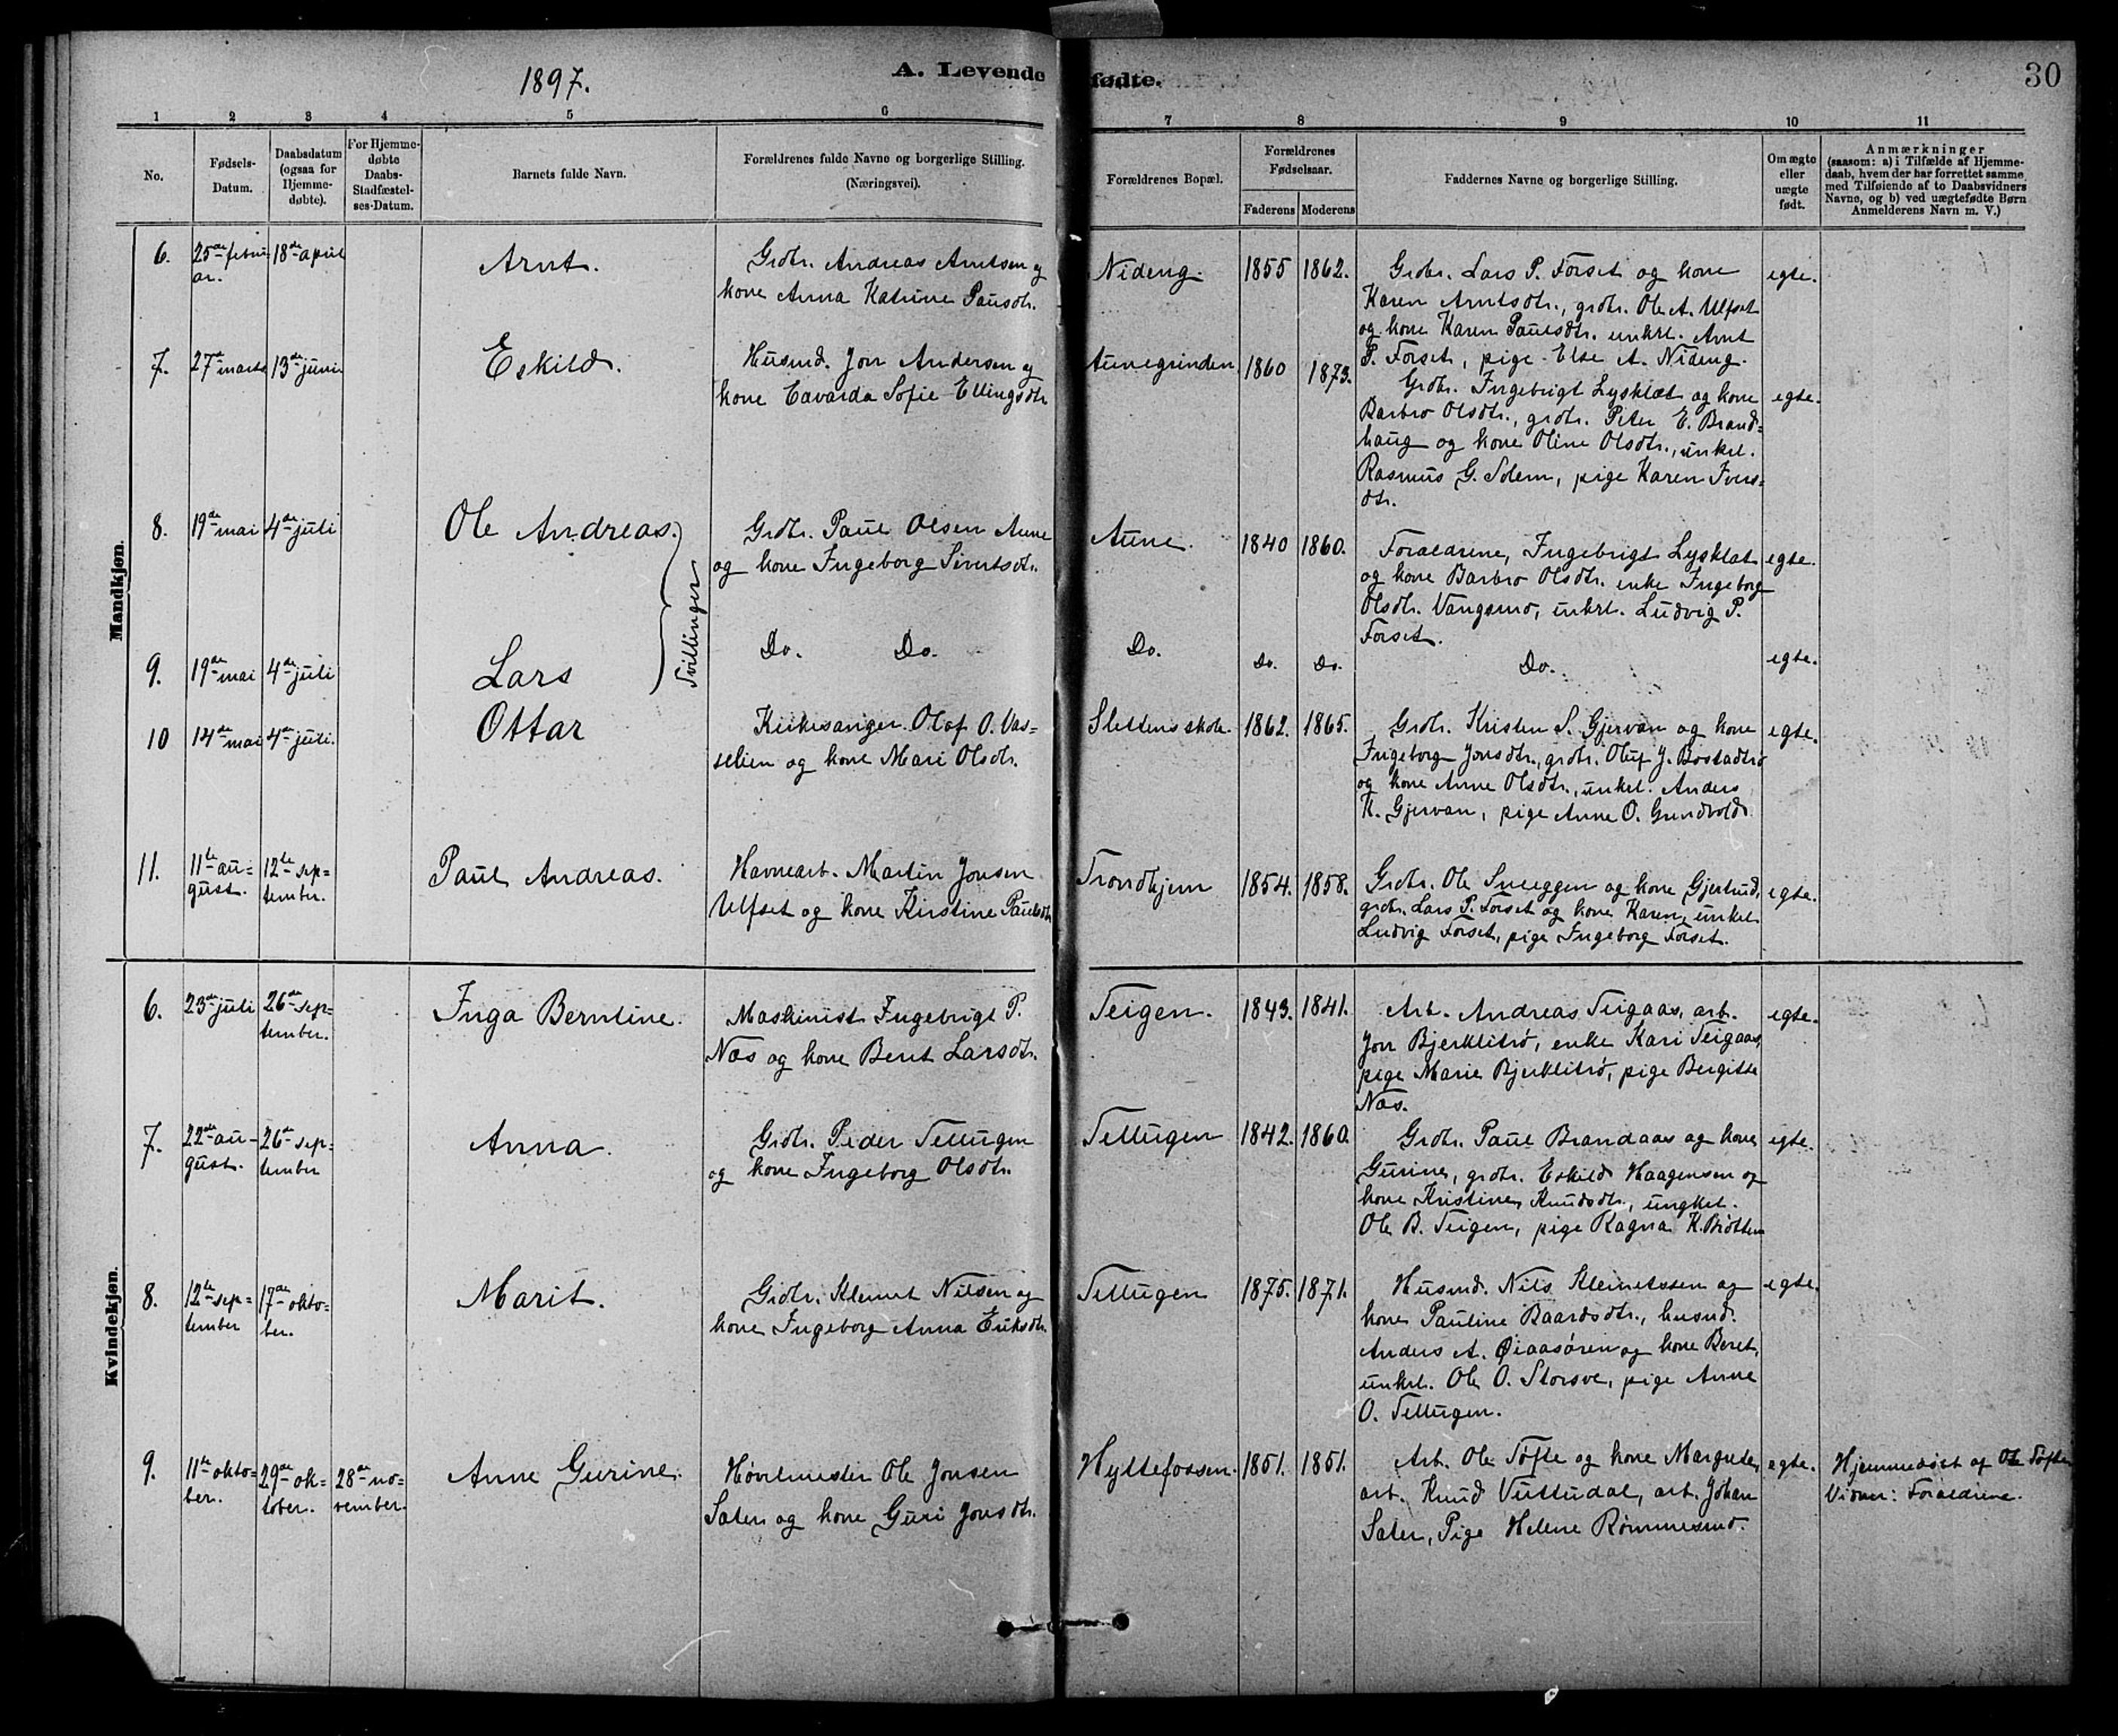 1897.
A. Levende fødte.
30
1 2 3 4 5 6 7 8 9 10 11
No.
Fødsels-
Datum.
Daabsdatum
(ogsaa for
Hjemme-
døbte).
For Hjemme-
døbte
Daabs-
Stadfæstel-
ses-Datum.
Barnets fulde Navn.
Forældrenes fulde Navne og borgerlige Stilling.
(Næringsvei).
Forældrenes Bopæl.
Forældrenes
Fødselsaar.
Faderens Moderens
Faddernes Navne og borgerlige Stilling.
Om ægte
eller
uægte
født.
Anmærkninger
(saasom: a) i Tilfælde af Hjemme-
daab, hvem der har forrettet samme
med Tilføiende af to Daabsvidners
Navne, og b) ved uægtefødte Børn
Anmelderens Navn m. V.)
Mandkjøn.
6.
25de febru
ar.
18de april
Arnt.
Grdbr. Andreas Arntsen og
kone Anna Katrine Paulsdtr.
Nideng.
1855 1862.
Grdbr. Lars P. Forset og kone
Karen Arntsdtr., grdbr. Ole A. Ulfset
og kone Karen Paulsdtr. unkrl. Arnt
P. Forset, pige Else A. Nideng.
egte.
7.
27de marts
13de juni
Eskild.
Husmd. Jon Andersen og
kone Edvarda Sofie Ellingsdtr.
Aunegrinden
1860 1873.
Grdbr. Ingebrigt Lysklæt og kone
Barbro Olsdtr., grdbr. Peter E. Brand=
haug og kone Oline Olsdtr., unkrl.
Rasmus G. Solem, pige Karen Ivers=
dtr.
egte.
8.
19de mai
4de juli
Ole Andreas.
Tvillinger
Grdbr. Paul Olsen Aune
og kone Ingeborg Sivertsdtr.
Aune.
1840 1860.
Forældrene, Ingebrigt Lysklæt
og kone Barbro Olsdtr. enke Ingeborg
Olsdtr. Vangsmo, unkrl. Ludvig P.
Forset.
egte.
9.
19de mai
4de juli
Lars
Do. Do.
Do.
Do. Do.
Do.
egte.
10
14de mai
4de juli.
Ottar
Kirkesanger Olof O. Vas=
selien og kone Mari Olsdtr.
Slettens skole.
1862. 1865.
Grdbr. Kristen S. Gjervan og kone
Ingeborg Jonsdtr., grdbr. Oluf J. Bostadtrø
og kone Anne Olsdtr., unkrl. Anders
K. Gjervan, pige Anne O. Grindvold.
egte.
11.
11te au=
gust.
12te sep=
tember.
Paul Andreas.
Havnearb. Martin Jonsen
Ulfset og kone Kirstine Paulsdtr.
Trondhjem
1854. 1858.
Grdbr. Ole Sneeggen og kone Gjertrud,
grdbr. Lars P. Forset og kone Karen, unkrl.
Ludvig Forset, pige Ingeborg Forset.
egte.
Kvindekjøn.
6.
23de juli
26de sep=
tember.
Inga Berntine.
Maskinist Ingebrigt P.
Næs og kone Berit Larsdtr.
Teigen.
1843. 1841.
Arb. Andreas Teigaas, arb.
Jon Bjerklitrø, enke Kari Teigaas,
pige Marie Bjerklitrø, pige Bergitte
Næs.
egte.
7.
22de au-
gust.
26de sep=
tember
Anna.
Grdbr. Peder Tellugen
og kone Ingeborg Olsdtr.
Tellugen
1842. 1860.
Grdbr. Paul Brandaas og kone
Gurine, grdbr. Eskild Haagensen og
kone Kristine Knudsdtr., ungkrl.
Ole B. Teigen, pige Ragna K. Brøttem
egte.
8.
12te sep=
tember
17de okto=
ber.
Marit.
Grdbr. Klemet Nilsen og
kone Ingeborg Anna Eriksdtr.
Tellugen
1875. 1871.
Husmd. Nils Klemetssen og
kone Pauline Baardsdtr., husmd.
Anders A. Øiaasøren og kone Beret,
unkrl. Ole O. Storsve, pige Anne
O. Tellugen.
egte.
9.
11te okto=
ber.
29de ok=
tober.
28de no=
vember.
Anne Gurine.
Høvlmester Ole Jonsen
Sæter og kone Guri Jonsdtr.
Hyttefossen.
1851. 1851.
Arb. Ole Tøfte og kone Margrete,
arb. Knud Vuttudal, arb. Johan
Sæter, Pige Helene Rømmesmo.
egte.
Hjemmedøbt af Ole Tøfte
Vidner: Forældrene.